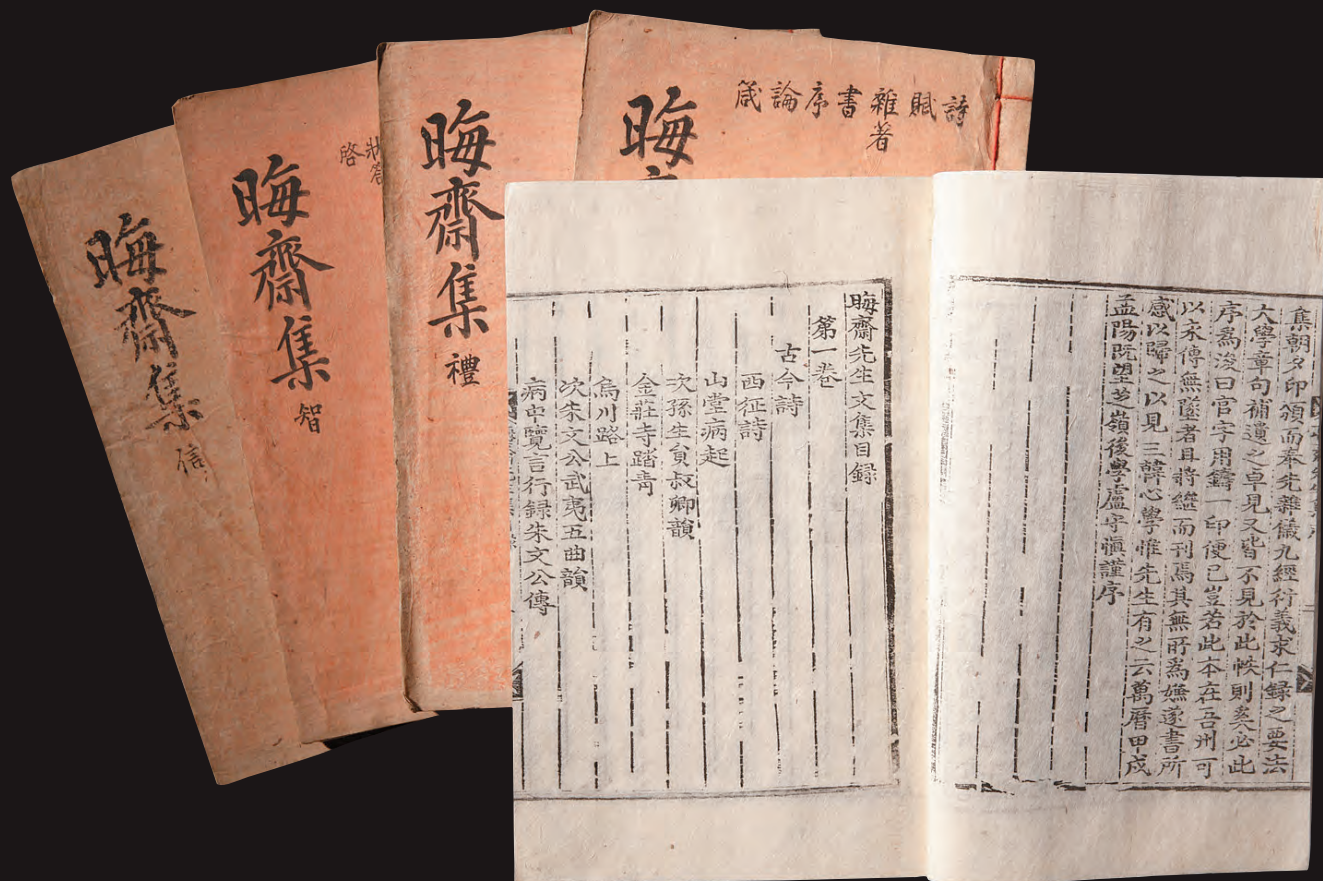 晦齋集
信
晦齋集
智
狀答
啓
晦齋集
禮
晦
詩
賦
雜著
書
序
論
箴
集朝夕印頒而奉先雜儀九經衍義求仁錄之要法
大學章句補遺之卓見又皆不見於此帙則奚必此
序爲浚曰官字用鑄一印便已豈若此本在吾州可
以永傳無墜者且將繼而刊焉其無所爲嫌遂書所
感以歸之以見三韓心學惟先生有之云萬曆甲戌
孟陽旣望芝嶺後學盧守愼謹序
晦齋先生文集目錄
第一卷
古今詩
西征詩
山堂病起
次孫生員叔卿韻
金莊寺踏靑
烏川路上
次朱文公武夷五曲韻
病中覽言行録朱文公傳